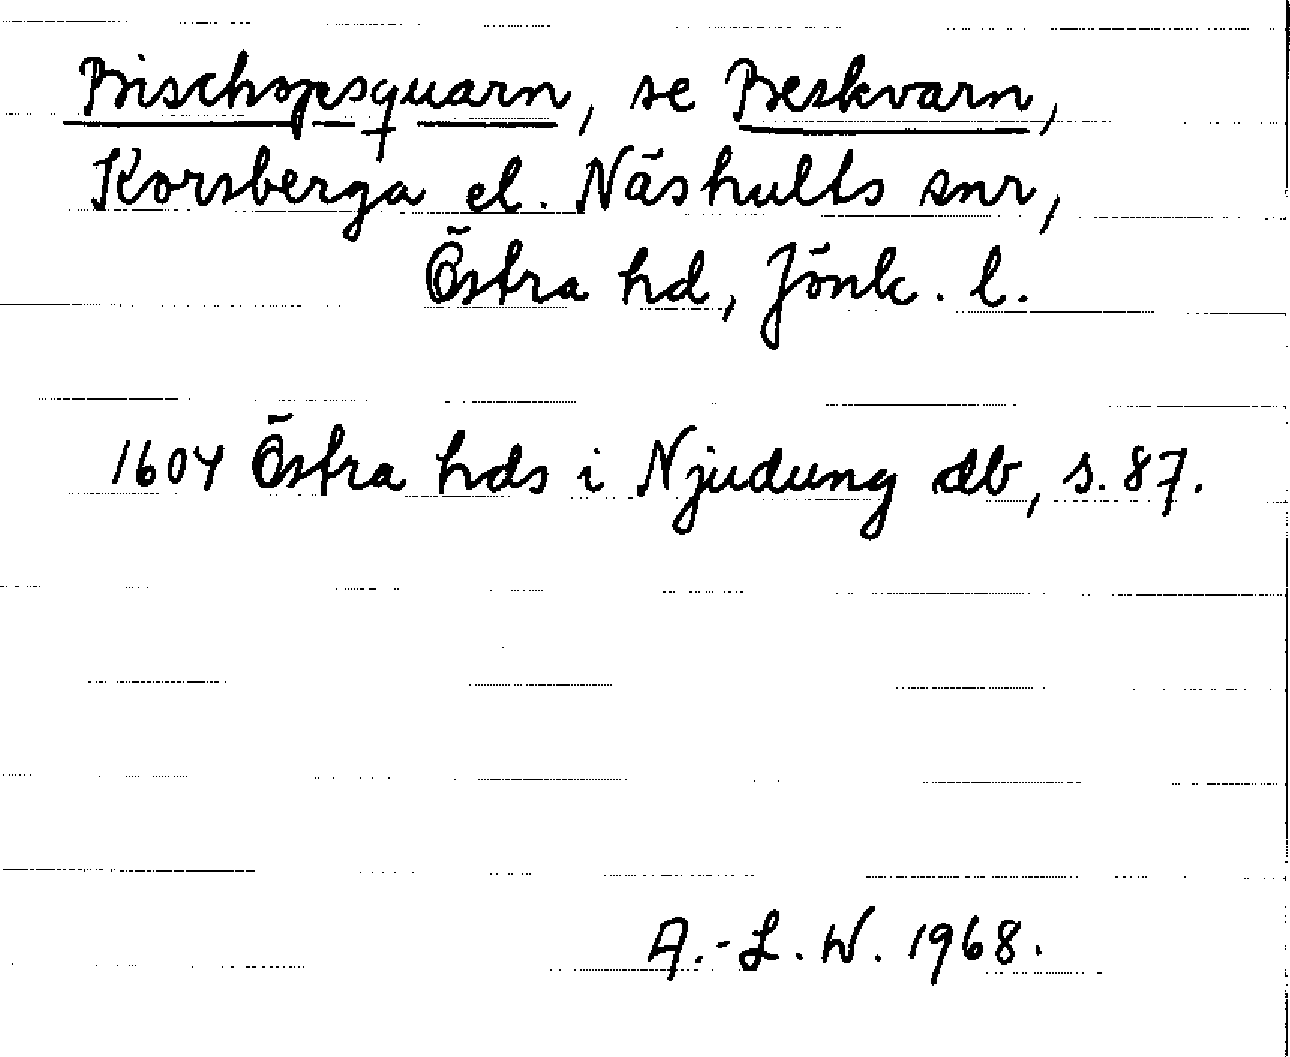 Bischopsquarn, se Beskvarn,
Korsberga el. Näshults snr,
Östra hd, Jönk. l.
1604 Östra hds i Njudung db, s. 87.
A.-L. W. 1968.